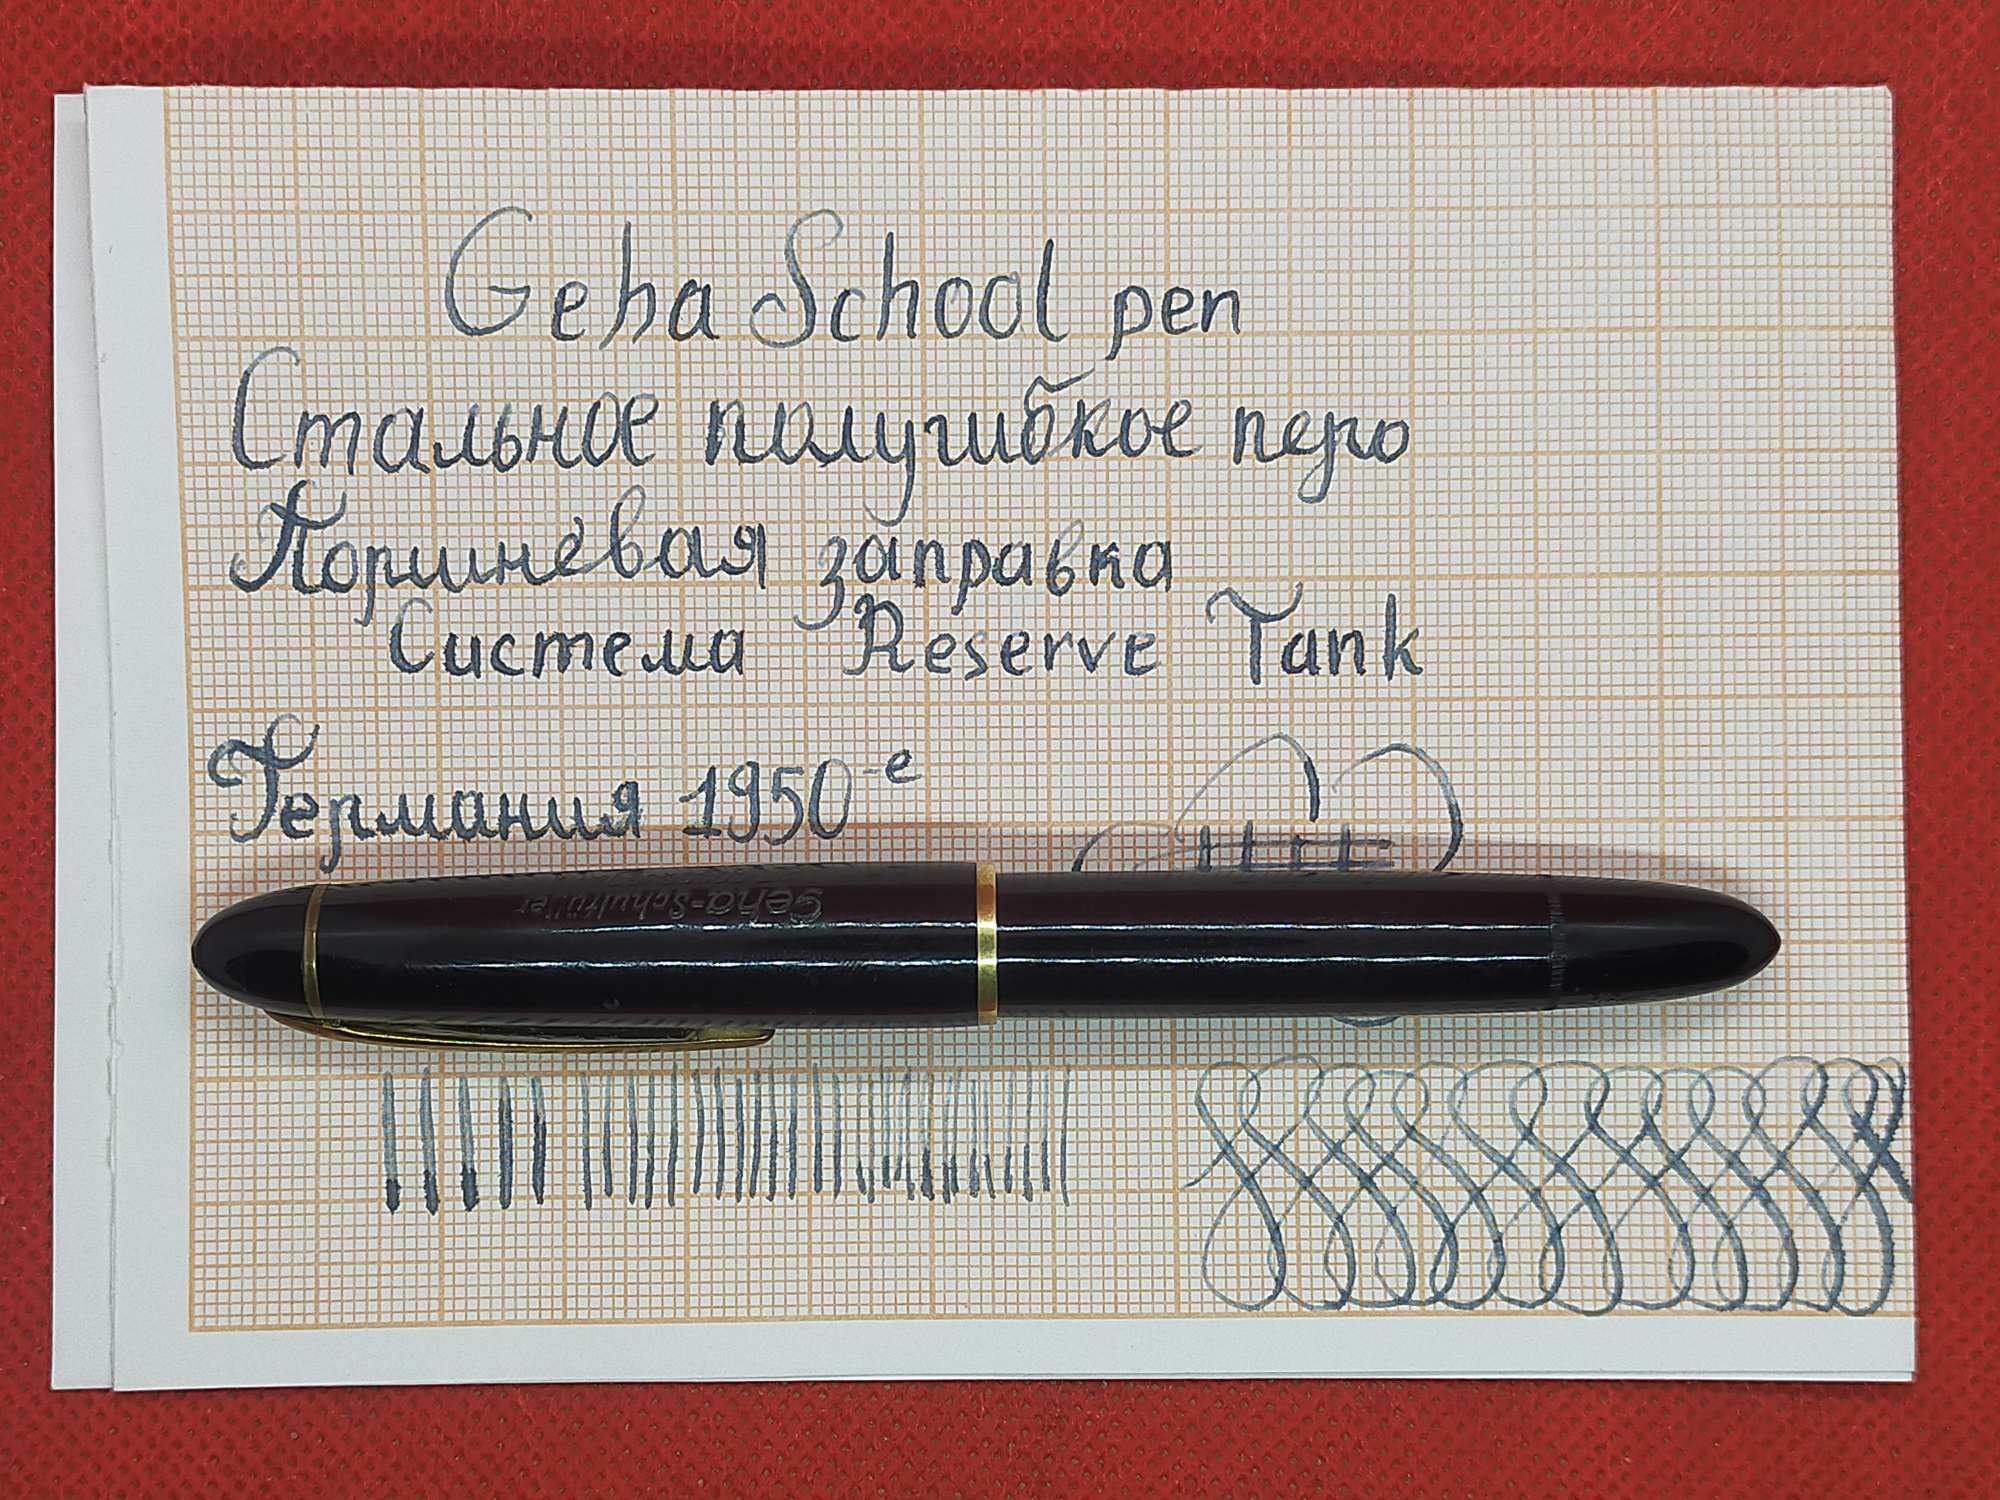 Geha School pen
Стальное полугибкое перо
Поршневая заправка
Система Reserve Tank
Германия 1950-е
Geha-Schulfüller